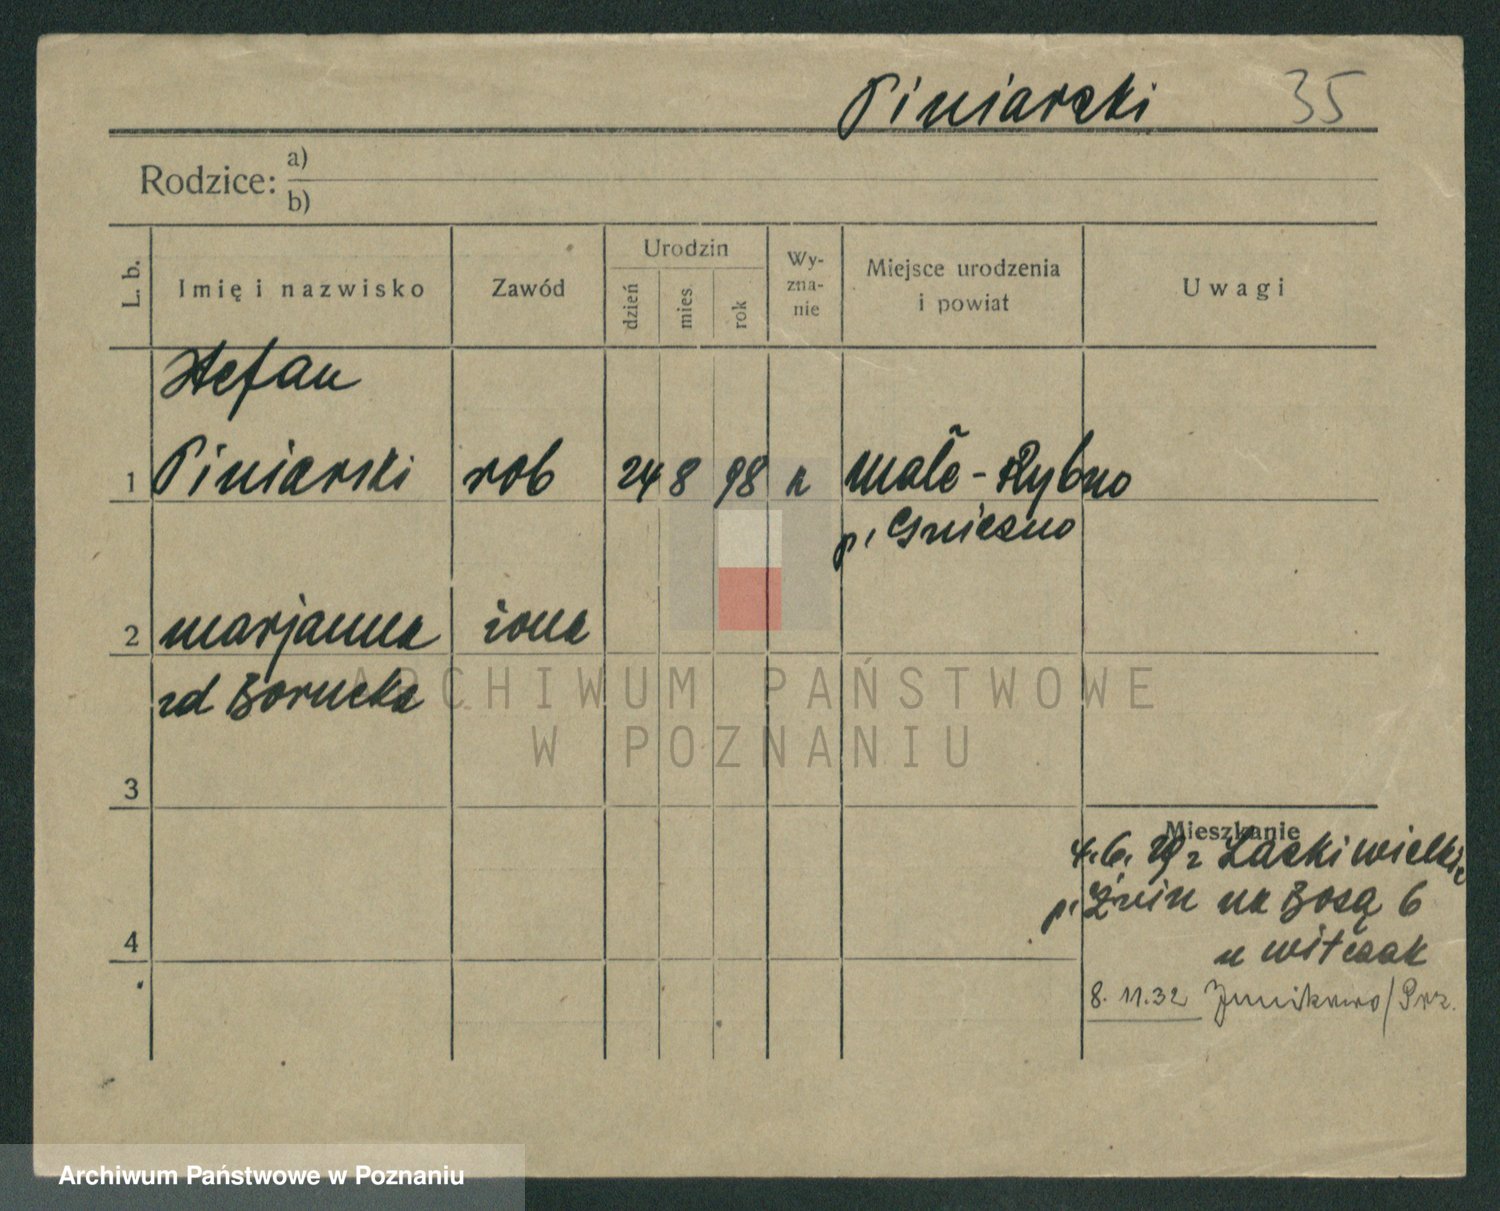 Piniarski 35
Rodzice: a)
b)
L. b. Imię i nazwisko Zawód Urodzin dzień mies. rok Wy-zna-nie Miejsce urodzenia i powiat Uwagi
Stefan
1 Piniarski rob 24 8 98 k Małe - Rybno
p. Gniezno
2 Marjanna żona
zd Borucka
ARCHIWUM PAŃSTWOWE
W POZNANIU
3
Mieszkanie
4.6.29 z Laski wielkie
p. Żnin na Bosą 6
4 u Witczak
8. 11.32 Junikowo/Poz.
Archiwum Państwowe w Poznaniu